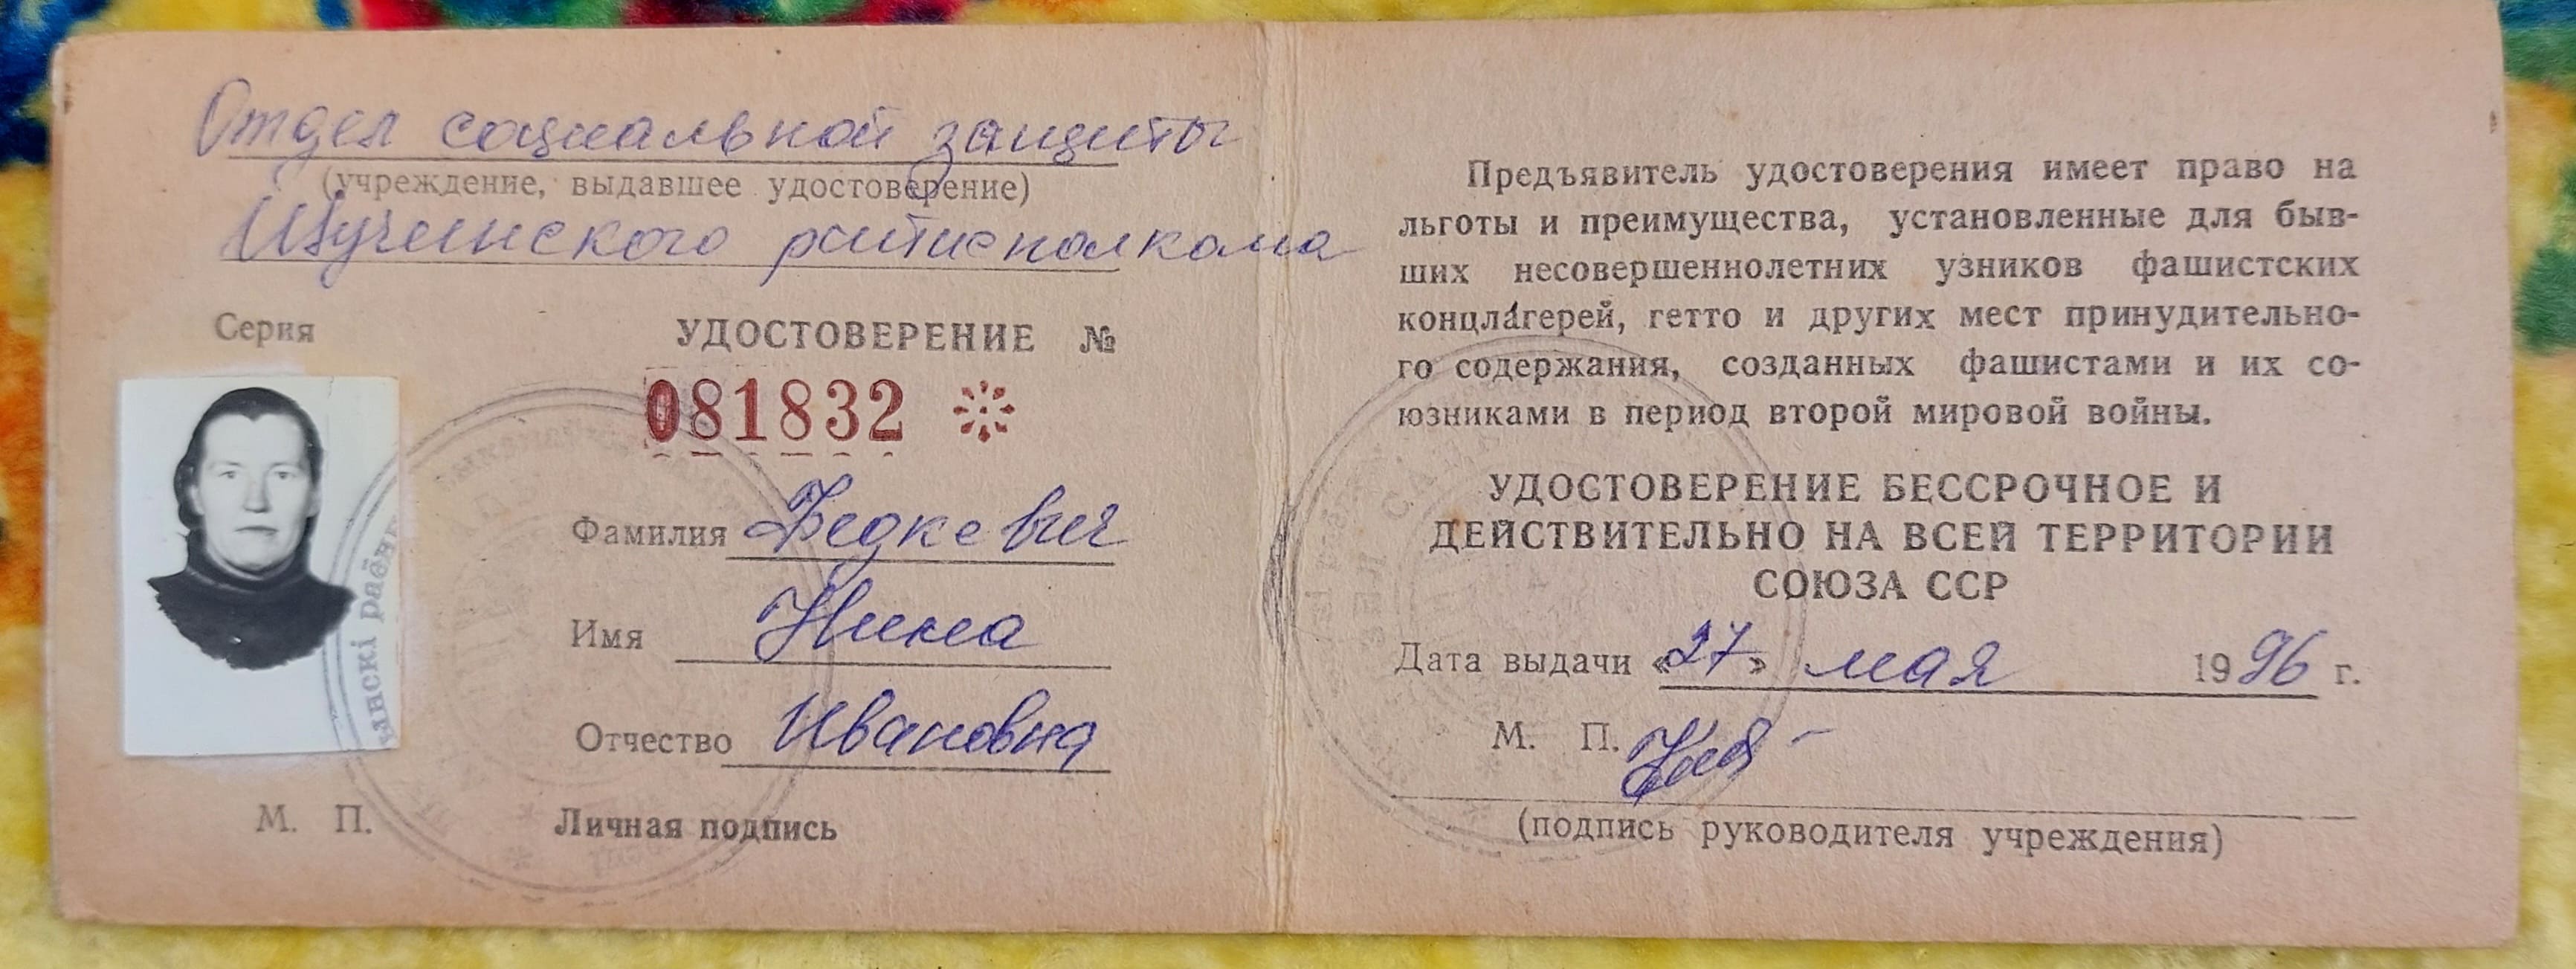 Отдел социальной защиты
(учреждение, выдавшее удостоверение)
Щучинского райисполкома
Серия
УДОСТОВЕРЕНИЕ №
081832
Фамилия Федкевич
Имя Нина
Отчество Ивановна
М. П.
Личная подпись
Предъявитель удостоверения имеет право на
льготы и преимущества, установленные для быв-
ших несовершеннолетних узников фашистских
концлагерей, гетто и других мест принудительно-
го содержания, созданных фашистами и их со-
юзниками в период второй мировой войны.
УДОСТОВЕРЕНИЕ БЕССРОЧНОЕ И
ДЕЙСТВИТЕЛЬНО НА ВСЕЙ ТЕРРИТОРИИ
СОЮЗА ССР
Дата выдачи «27» мая 1996 г.
М. П.
(подпись руководителя учреждения)